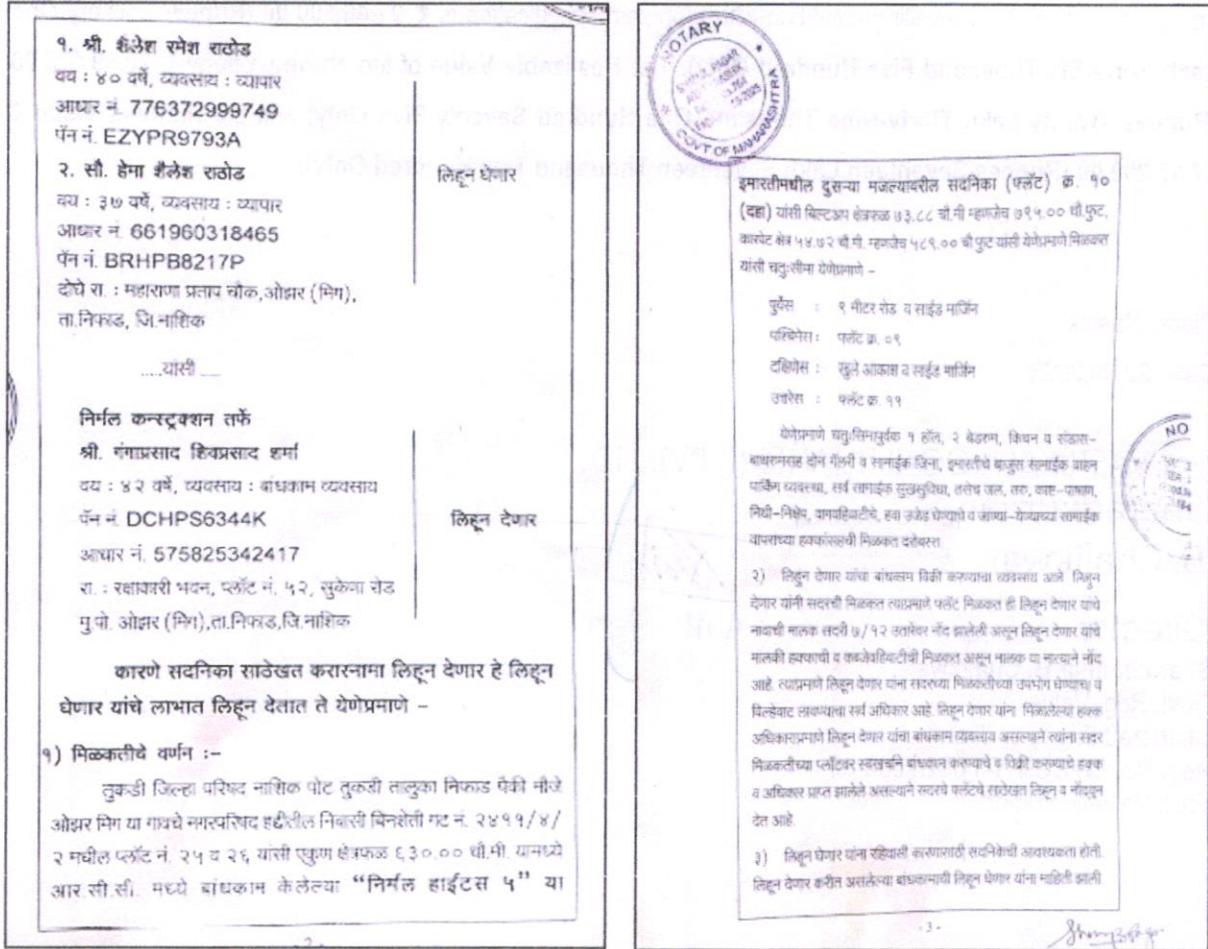 १. श्री. शैलेश रमेश राठोड
वय : ४० वर्षे, व्यवसाय : व्यापार
आधार नं. 776372999749
पॅन नं. EZYPR9793A
२. सौ. हेमा शैलेश राठोड
वय : ३७ वर्षे, व्यवसाय : व्यापार
आधार नं. 661960318465
पॅन नं. BRHPB8217P
दोघे रा. : महाराणा प्रताप चौक,ओझर (मिग),
ता.निफाड, जि.नाशिक
लिहून घेणार
.....यांसी.....
निर्मल कन्स्ट्रक्शन तर्फे
श्री. गंगाप्रसाद शिवप्रसाद शर्मा
वय : ४२ वर्षे, व्यवसाय : बांधकाम व्यवसाय
पॅन नं. DCHPS6344K
आधार नं. 575825342417
रा. : रक्षाकारी भवन, प्लॉट नं. ५२, सुकेणा रोड
मु.पो. ओझर (मिग),ता.निफाड,जि.नाशिक
लिहून देणार
कारणे सदनिका साठेखत करारनामा लिहून देणार हे लिहून
घेणार यांचे लाभात लिहून देतात ते येणेप्रमाणे –
१) मिळकतीचे वर्णन :–
तुकडी जिल्हा परिषद नाशिक पोट तुकडी तालुका निफाड पैकी मौजे
ओझर मिग या गावचे नगरपरिषद हद्दीतील निवासी बिनशेती गट नं. २४११/४/
२ मधील प्लॉट नं. २५ व २६ यांसी एकुण क्षेत्रफळ ६३०.०० चौ.मी. यामध्ये
आर.सी.सी. मध्ये बांधकाम केलेल्या “निर्मल हाईटस ५” या
- 2 -
NOTARY
GOVT OF MAHARASHTRA
इमारतीमधील दुसऱ्या मजल्यावरील सदनिका (फ्लॅट) क्र. १०
(दहा) यांसी बिल्टअप क्षेत्रफळ ७३.८८ चौ.मी म्हणजेच ७९५.०० चौ.फुट,
कारपेट क्षेत्र ५४.७२ चौ.मी. म्हणजेच ५८९.०० चौ.फुट यांसी येणेप्रमाणे मिळकत
यांसी चतुःसीमा येणेप्रमाणे –
पुर्वेस : ९ मीटर रोड व साईड मार्जिन
पश्चिमेस : फ्लॅट क्र. ०९
दक्षिणेस : खुले आकाश व साईड मार्जिन
उत्तरेस : फ्लॅट क्र. ११
येणेप्रमाणे चतुःसिमापुर्वक १ हॉल, २ बेडरुम, किचन व संडास–
बाथरुमसह दोन गॅलरी व सामाईक जिना, इमारतीचे बाजुस सामाईक वाहन
पार्किंग व्यवस्था, सर्व सामाईक सुखसुविधा, तसेच जल, तरु, काष्ट–पाषाण,
निधी–निक्षेप, हवा उजेड घेण्याचे व जाण्या–येण्याच्या सामाईक
वापरांच्या हक्कांसहची मिळकत दरोबस्त.
२) लिहून देणार यांचा बांधकाम विक्री करण्याचा व्यवसाय आहे. लिहून
देणार यांनी सदरची मिळकत त्याप्रमाणे फ्लॅट मिळकत ही लिहून देणार यांचे
नावाची मालक सदरी ७/१२ उताऱ्यावर नोंद झालेली असून लिहून देणार यांचे
मालकी हक्काची व कब्जेवहिवाटीची मिळकत असून मालक या नात्याने नोंद
आहे. त्याप्रमाणे लिहून देणार यांना सदरच्या मिळकतीच्या उपभोग घेण्याचा व
विल्हेवाट लावण्याचा सर्व अधिकार आहे. लिहून देणार यांना मिळालेल्या हक्क
अधिकाराप्रमाणे लिहून देणार यांचा बांधकाम व्यवसाय असल्याने त्यांना सदर
मिळकतीच्या प्लॉटवर स्वखर्चाने बांधकाम करण्याचे व विक्री करण्याचे हक्क
व अधिकार प्राप्त झालेले असल्याने सदरचे फ्लॅटचे साठेखत लिहून व नोंदवून
देत आहे.
३) लिहून घेणार यांना रहिवासी कारणासाठी सदनिकेची आवश्यकता होती.
लिहून देणार करीत असलेल्या बांधकामाची लिहून घेणार यांना माहिती झाली
- 3 -
NO